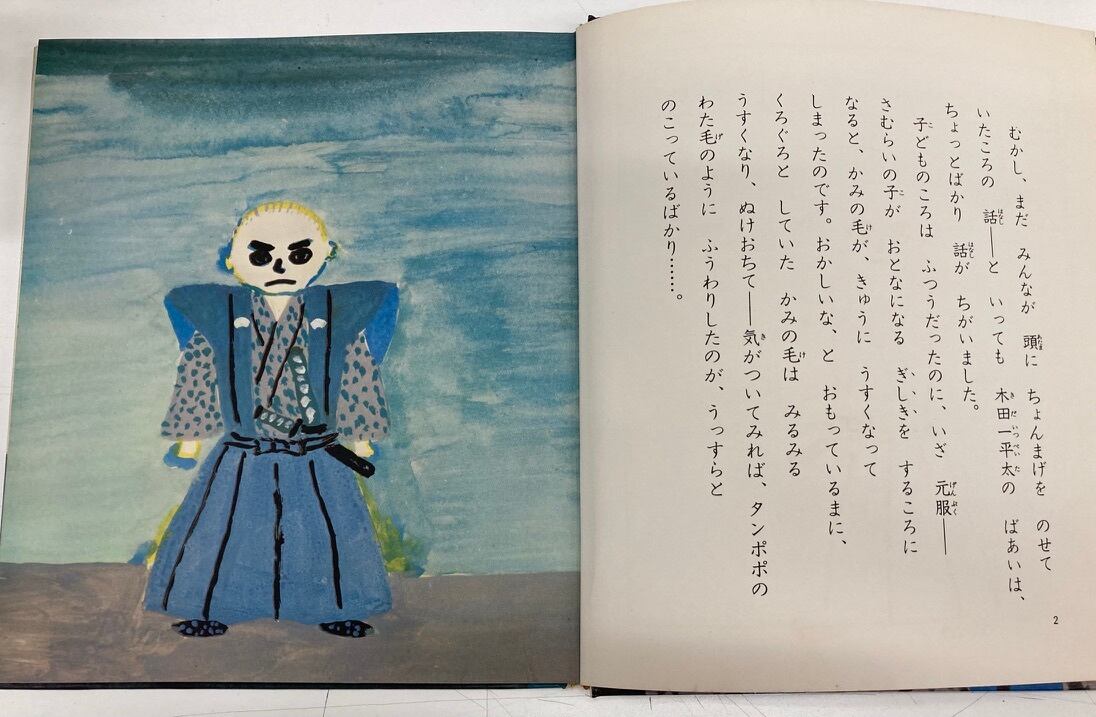 むかし、まだ みんなが 頭に ちょんまげを のせて
いたころの 話――と いっても 木田一平太の ばあいは、
ちょっとばかり 話が ちがいました。
子どものころは ふつうだったのに、いざ 元服――
さむらいの子が おとなになる ぎしきを するころに
なると、かみの毛が、きゅうに うすくなって
しまったのです。おかしいな、と おもっているまに、
くろぐろと していた かみの毛は みるみる
うすくなり、ぬけおちて――気がついてみれば、タンポポの
わた毛のように ふうわりしたのが、うっすらと
のこっているばかり……。
2